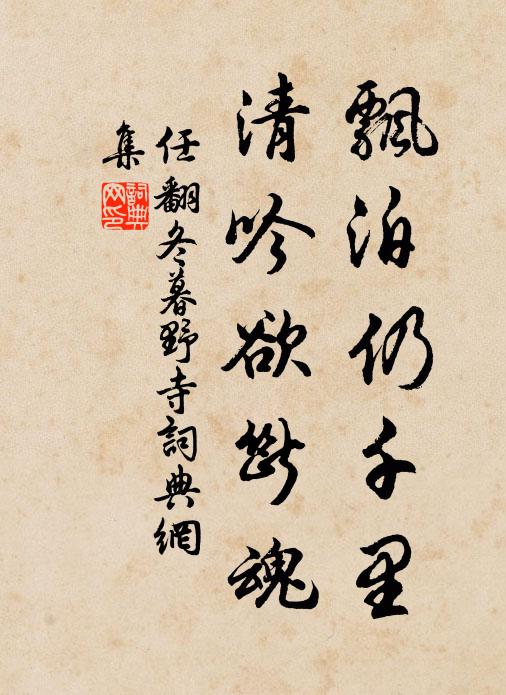 飄泊仍千里
清吟欲斷魂
任翻冬暮野寺詞典網
集
詞典
网印